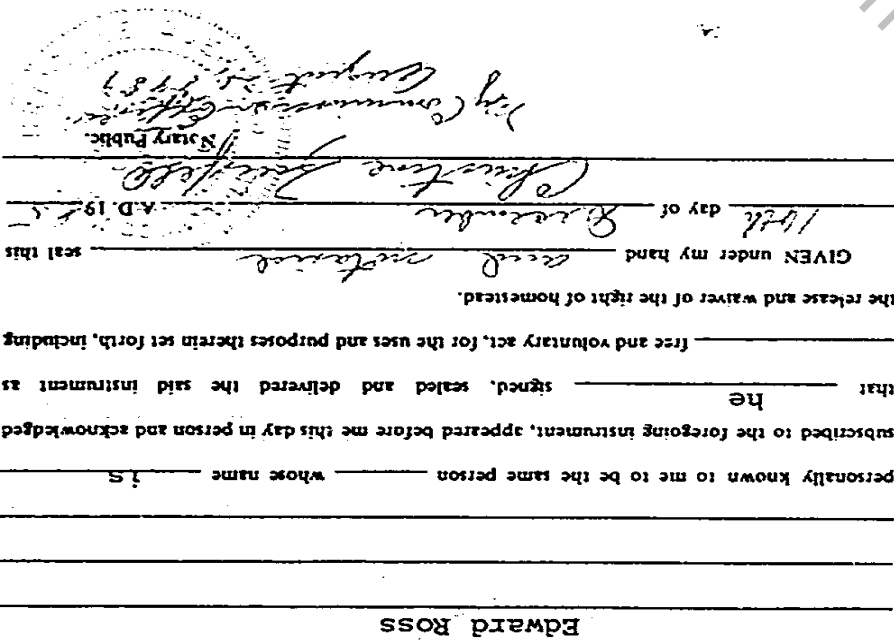 Edward Ross
personally known to me to be the same person whose name is
subscribed to the foregoing instrument, appeared before me this day in person and acknowledged
that he signed, sealed and delivered the said instrument as
free and voluntary act, for the uses and purposes therein set forth, including
the release and waiver of the right of homestead.
GIVEN under my hand and notarial seal this
day of December A.D. 19
Christine
Notary Public.
My Commission Expires
August